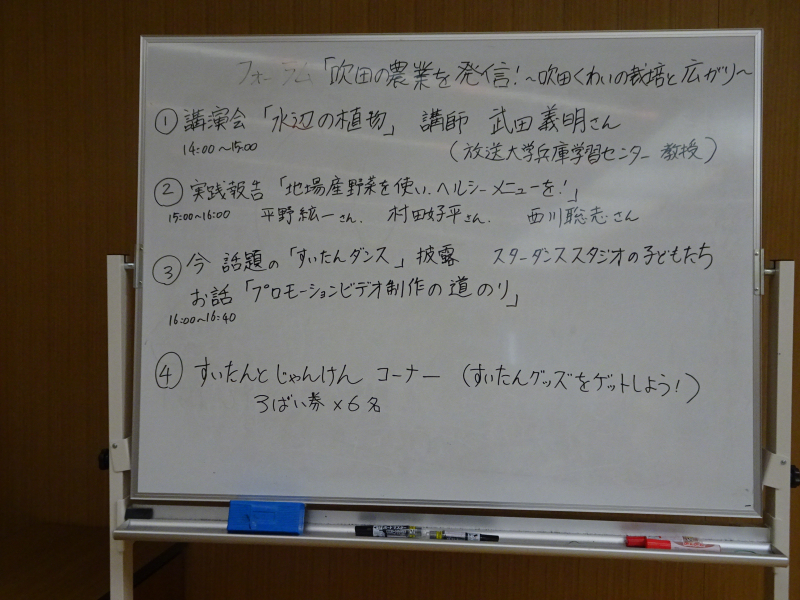 フォーラム「吹田の農業を発信!~吹田くわいの栽培と広がり~
① 講演会「水辺の植物」 講師 武田義明さん
14:00~15:00 (放送大学兵庫学習センター 教授)
② 実践報告「地場産野菜を使い、ヘルシーメニューを!」
15:00~16:00 平野紘一さん、村田好平さん、西川聡志さん
③ 今話題の「すいたんダンス」披露 スターダンススタジオの子どもたち
お話「プロモーションビデオ制作の道のり」
16:00~16:40
④ すいたんとじゃんけん コーナー (すいたんグッズをゲットしよう!)
3ばい券×6名